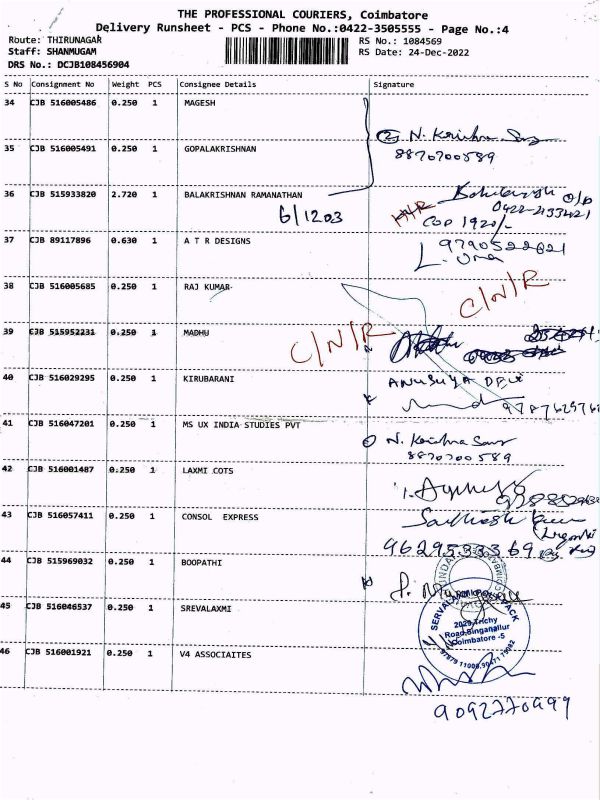 THE PROFESSIONAL COURIERS, Coimbatore
Delivery Runsheet - PCS - Phone No.:0422-3505555 - Page No.:4
Route: THIRUNAGAR
Staff: SHANMUGAM
DRS No.: DCJB108456904
RS No.: 1084569
RS Date: 24-Dec-2022
S No Consignment No Weight PCS Consignee Details Signature
34 CJB 516005486 0.250 1 MAGESH
N. Krishna
8870700589
35 CJB 516005491 0.250 1 GOPALAKRISHNAN
36 CJB 515933820 2.720 1 BALAKRISHNAN RAMANATHAN
6/1203
COD 1920/-
37 CJB 89117896 0.630 1 A T R DESIGNS
9790522621
L. Uma
38 CJB 516005685 0.250 1 RAJ KUMAR
C/N/R
39 CJB 515952231 0.250 1 MADHU
C/N/R
40 CJB 516029295 0.250 1 KIRUBARANI
ANUSUYA DEVI
41 CJB 516047201 0.250 1 MS UX INDIA STUDIES PVT
N. Krishna
8870700589
42 CJB 516001487 0.250 1 LAXMI COTS
43 CJB 516057411 0.250 1 CONSOL EXPRESS
9629533369
44 CJB 515969032 0.250 1 BOOPATHI
45 CJB 516046537 0.250 1 SREVALAXMI
2029 Trichy
Road, Singanallur
Coimbatore -5
46 CJB 516001921 0.250 1 V4 ASSOCIAITES
9092770999